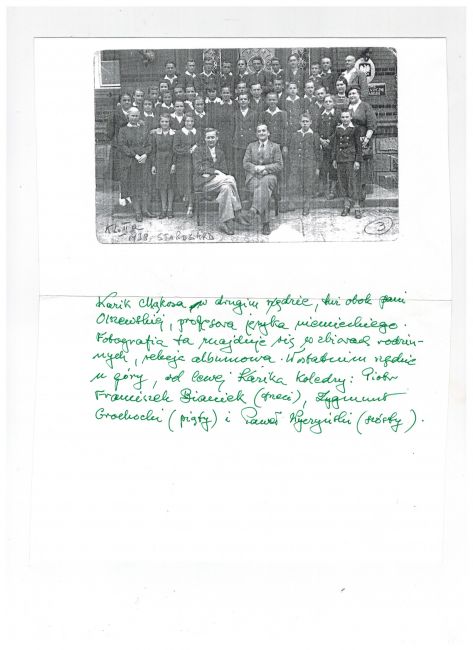 Kl. II a
1938 STAROGARD
3
Karik Mąkosa w drugim rzędzie, tuż obok pani
Olszewskiej, profesora języka niemieckiego.
Fotografia ta znajduje się w zbiorach rodzin-
nych, sekcja albumowa. W ostatnim rzędzie
u góry, od lewej Karika koledzy: Piotr
Franciszek Bianiek (trzeci), Zygmunt
Grochocki (piąty) i Paweł Wyczyński (szósty).